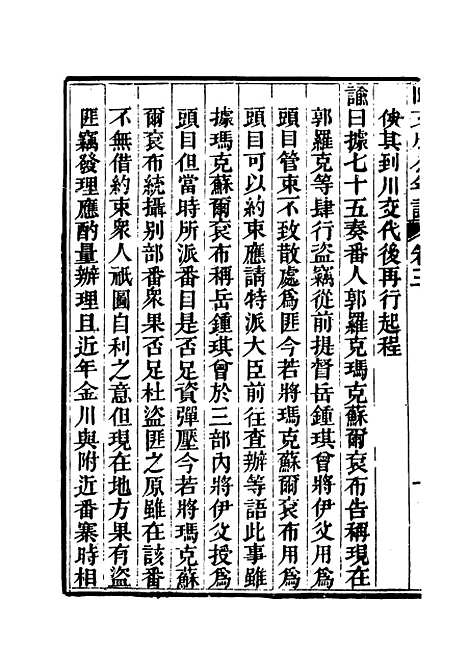 年譜 卷三
俟其到川交代後再行起程
諭曰據七十五奏番人郭羅克瑪克蘇爾袞布告稱現在
郭羅克等肆行盜竊從前提督岳鍾琪曾將伊父用爲
頭目管束不致散處爲匪今若將瑪克蘇爾袞布用爲
頭目可以約束應請特派大臣前往查辦等語此事雖
據瑪克蘇爾袞布稱岳鍾琪曾於三部內將伊父授爲
頭目但當時所派番目是否足資彈壓今若將瑪克蘇
爾袞布統攝別部番衆果否足杜盜匪之原雖在該番
不無借約束衆人祇圖自利之意但現在地方果有盜
匪竊發理應酌量辦理且近年金川與附近番寨時相